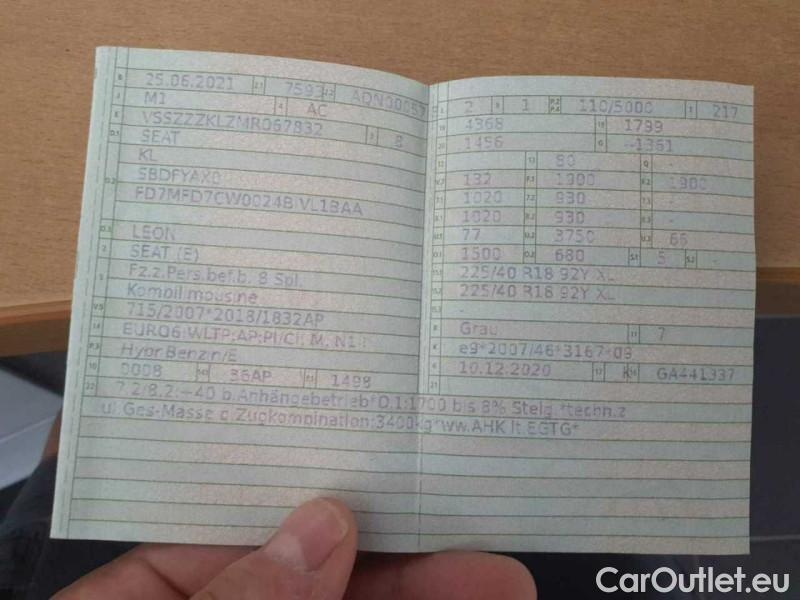 B 25.06.2021 2.1 7593 2.2 ADN00057
J M1 4 AC
E VSSZZZKLZMR067832 3 8
D.1 SEAT
D.2 KL
SBDFYAX0
FD7MFD7CW0024B VL1BAA
D.3 LEON
2 SEAT (E)
5 Fz.z.Pers.bef.b. 8 Spl.
Kombilimousine
V.9 715/2007*2018/1832AP
14 EURO6;WLTP;AP;PI/CI; M, N1 I
P.3 Hybr.Benzin/E
10 0008 14.1 36AP P.1 1498
22 7.2/8.2:+40 b.Anhängebetrieb*O.1:1700 bis 8% Steig.*techn.z
ul.Ges-Masse d.Zugkombination:3400kg*ww.AHK lt.EGTG*
L 2 9 1 P.2 P.4 110/5000 T 217
18 4368 19 1799
20 1456 G -1361
12 - 13 80 Q -
V.7 132 F.1 1900 F.2 1900
7.1 1020 7.2 930 7.3 -
8.1 1020 8.2 930 8.3 -
U.1 77 U.2 3750 U.3 66
O.1 1500 O.2 680 S.1 5 S.2 -
15.1 225/40 R18 92Y XL
15.2 225/40 R18 92Y XL
15.3 -
R Grau 11 7
K e9*2007/46*3167*09
6 10.12.2020 17 K 16 GA441337
21
CarOutlet.eu